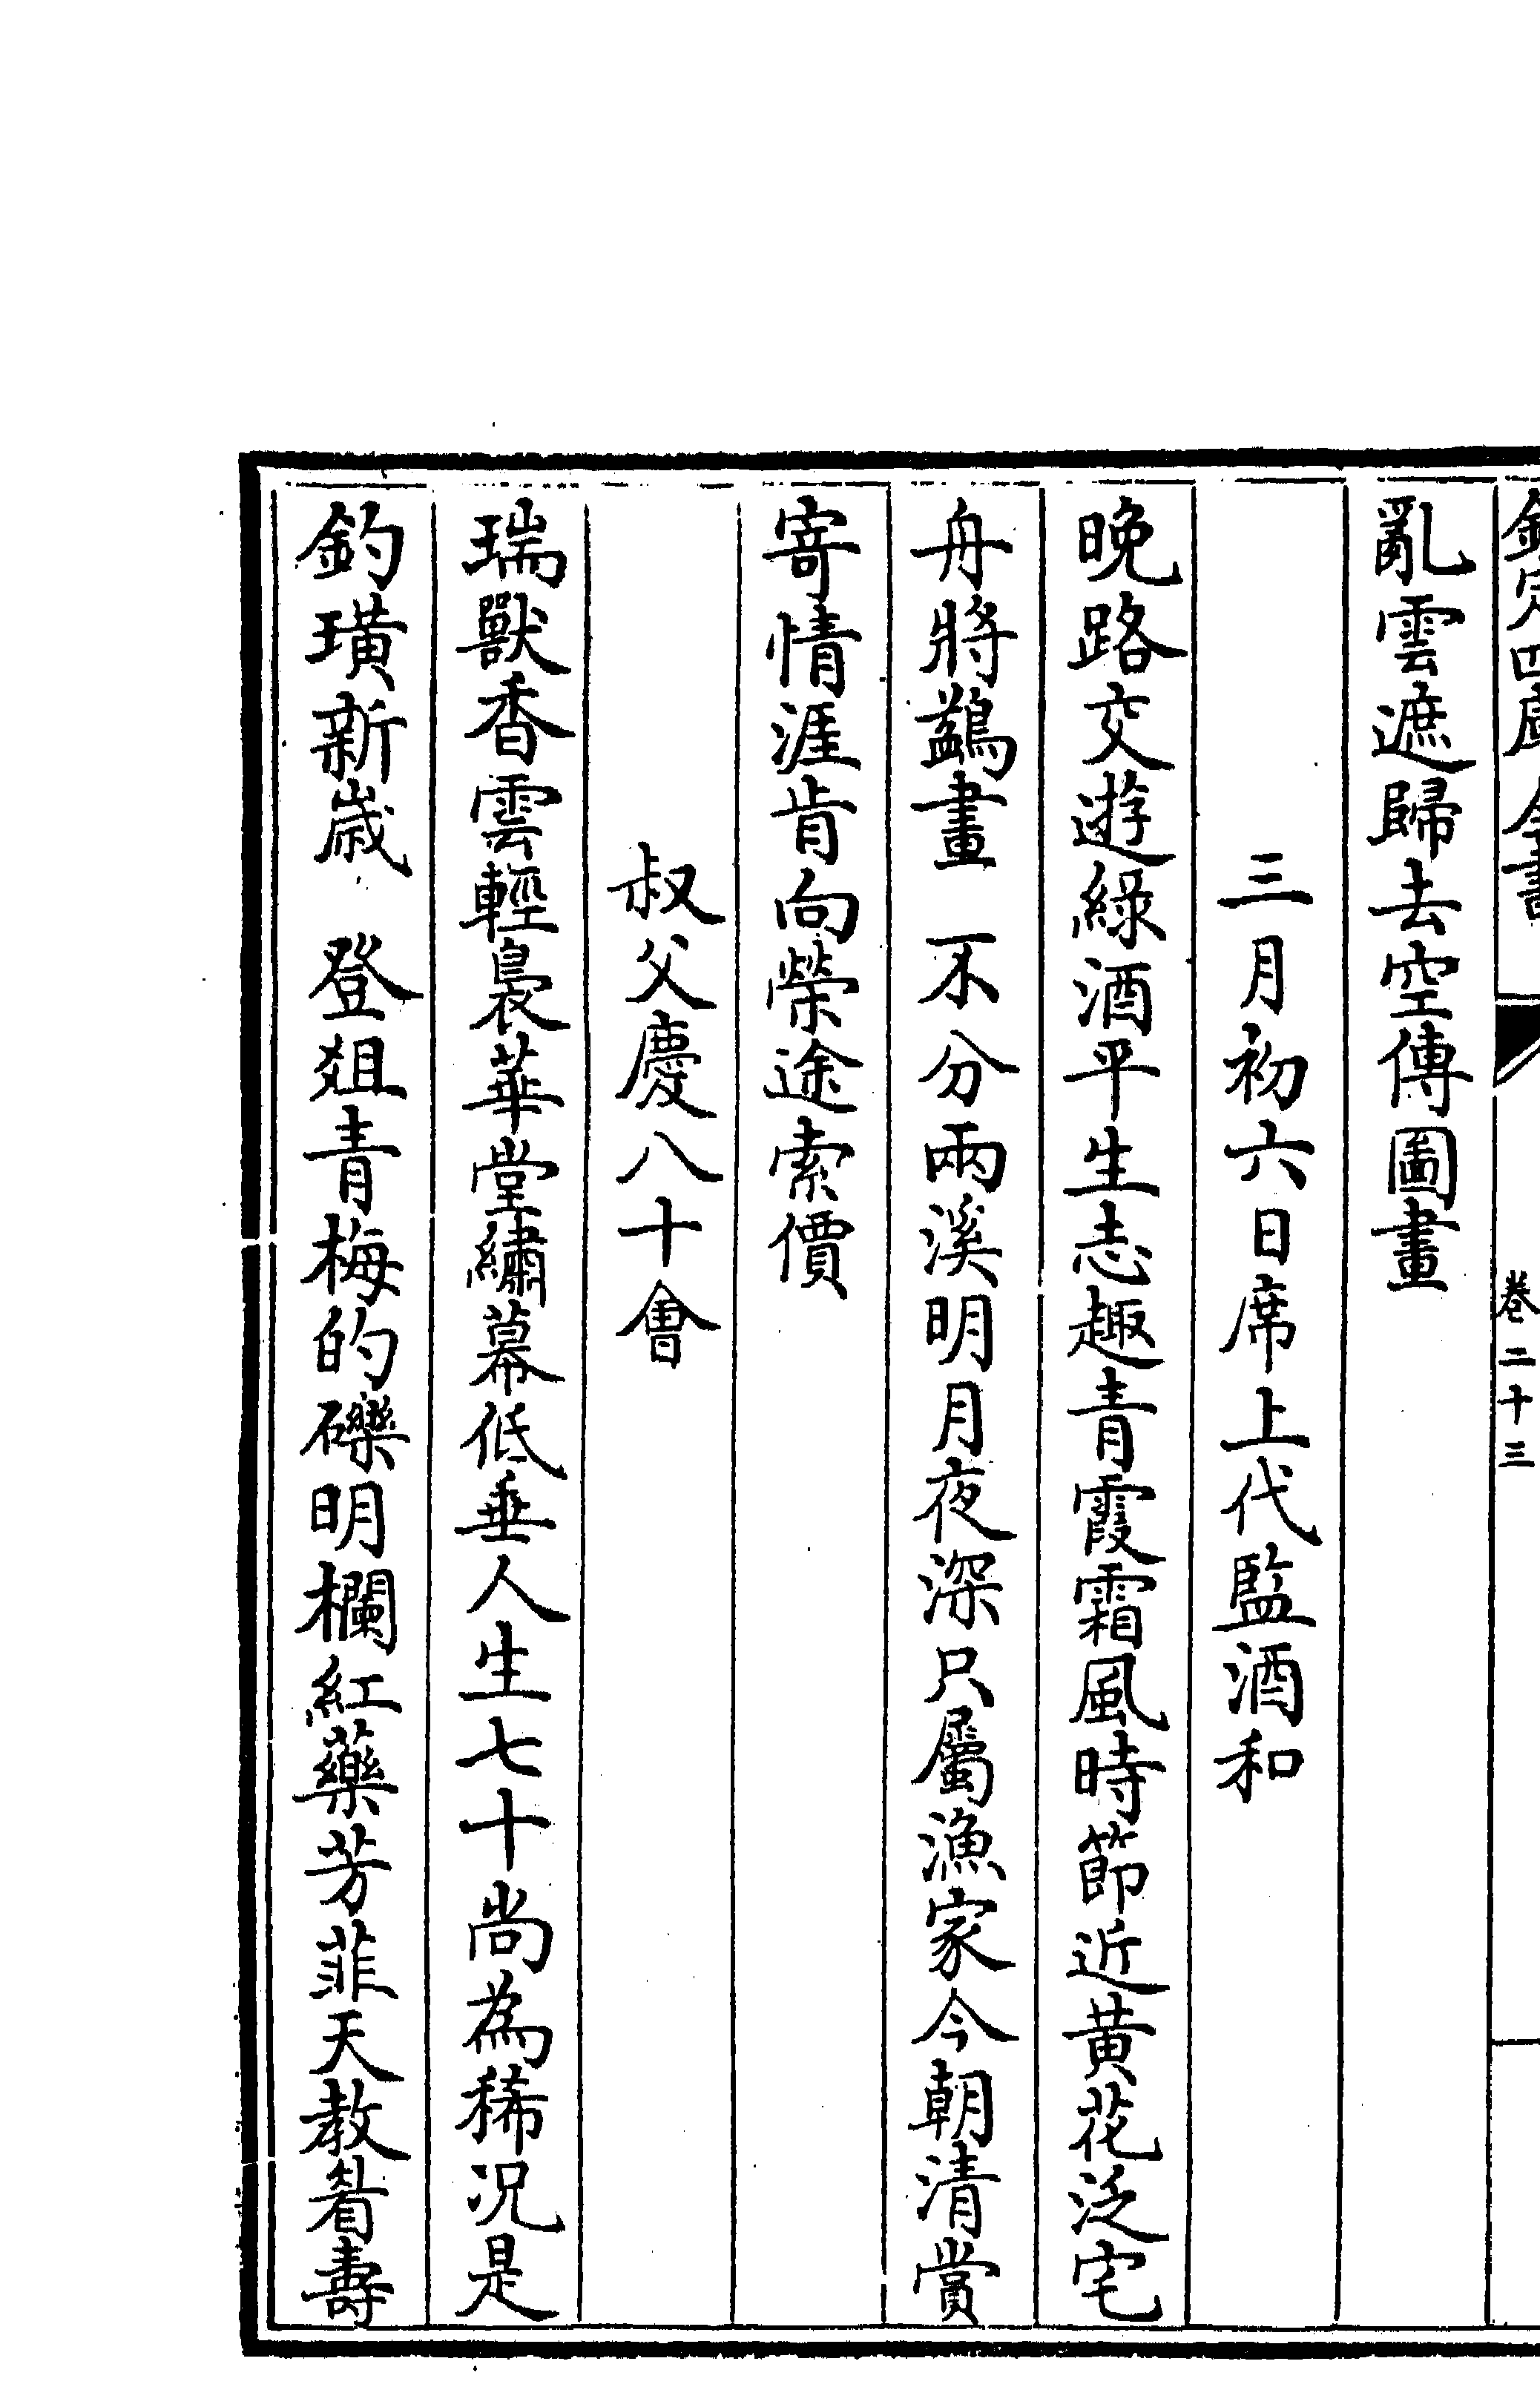 欽定四庫全書 卷二十三
亂雲遮歸去空傳圖畫
三月初六日席上代監酒和
晚路交遊綠酒平生志趣青霞霜風時節近黃花泛宅
舟將鷁畫 不分兩溪明月夜深只屬漁家今朝清賞
寄情涯肯向榮途索價
叔父慶八十會
瑞獸香雲輕裊華堂繡幕低垂人生七十尚為稀況是
釣璜新歲 登爼青梅的礫明欄紅藥芳菲天教眉壽